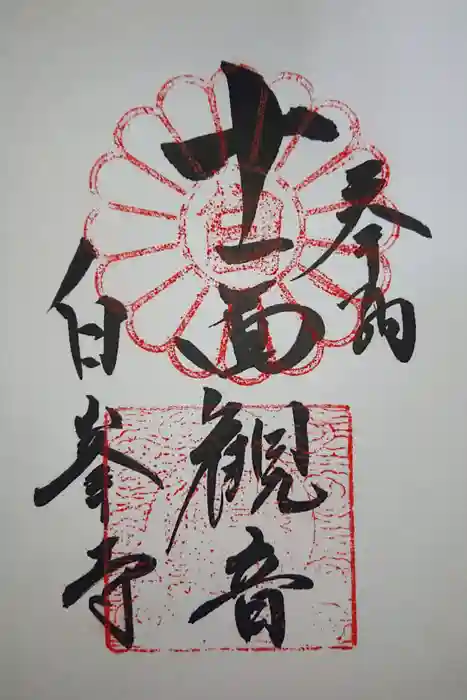 奉納
十一面観音
白峯寺